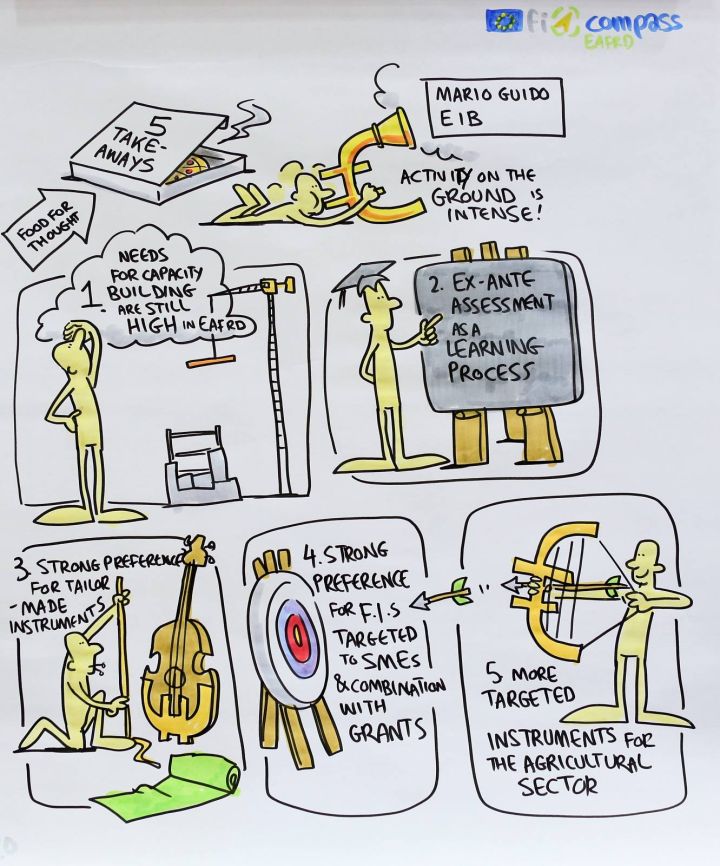 fi compass
EAFRD
5
TAKE-
AWAYS
MARIO GUIDO
EIB
ACTIVITY ON THE
GROUND IS
INTENSE!
FOOD FOR
THOUGHT
1. NEEDS
FOR CAPACITY
BUILDING
ARE STILL
HIGH IN EAFRD
2. EX-ANTE
ASSESSMENT
AS A
LEARNING
PROCESS
3. STRONG PREFERENCE
FOR TAILOR
-MADE
INSTRUMENTS
4. STRONG
PREFERENCE
FOR F.I.S
TARGETED
TO SMEs
& COMBINATION
WITH
GRANTS
5. MORE
TARGETED
INSTRUMENTS FOR
THE AGRICULTURAL
SECTOR